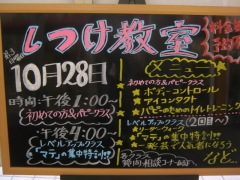 しつけ教室
10月28日
時間:午後1:00〜
初めての方&パピークラス
午後4:00〜
レベルアップクラス
「マテ」の集中特訓!!
メニュー
初めての方&パピークラス
★ボディーコントロール
★アイコンタクト
★パピーのためのトイレトレーニング
レベルアップクラス(2回目〜)
★リーダーウォーク
★「マテ」の集中特訓!!
各クラス